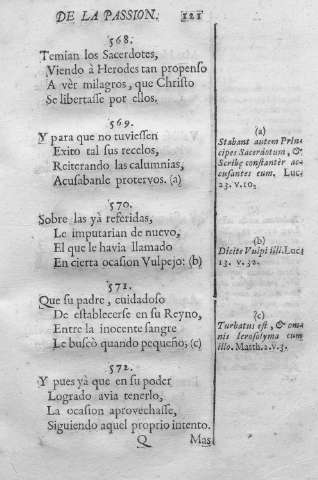 DE LA PASSION. 121
568.
Temian los Sacerdotes,
Viendo à Herodes tan propenso
A vèr milagros, que Christo
Se libertasse por ellos.
569.
Y para que no tuviessen
Exito tal sus recelos,
Reiterando las calumnias,
Acusabanle protervos. (a)
570.
Sobre las yà referidas,
Le imputarian de nuevo,
El que le havia llamado
En cierta ocasion Vulpejo: (b)
571.
Que su padre, cuidadoso
De establecerse en su Reyno,
Entre la inocente sangre
Le buscò quando pequeño; (c)
572.
Y pues yà que en su poder
Logrado avia tenerlo,
La ocasion aprovechasse,
Siguiendo aquel proprio intento.
Q Mas
(a)
Stabant autem Prin-
cipes Sacerdotum, &
Scribę constantèr ac-
cusantes eum. Luc.
23. v. 10.
(b)
Dicite Vulpi illi. Luc.
13. v. 32.
(c)
Turbatus est, & om-
nis Ierosolyma cum
illo. Matth. 2. v. 3.